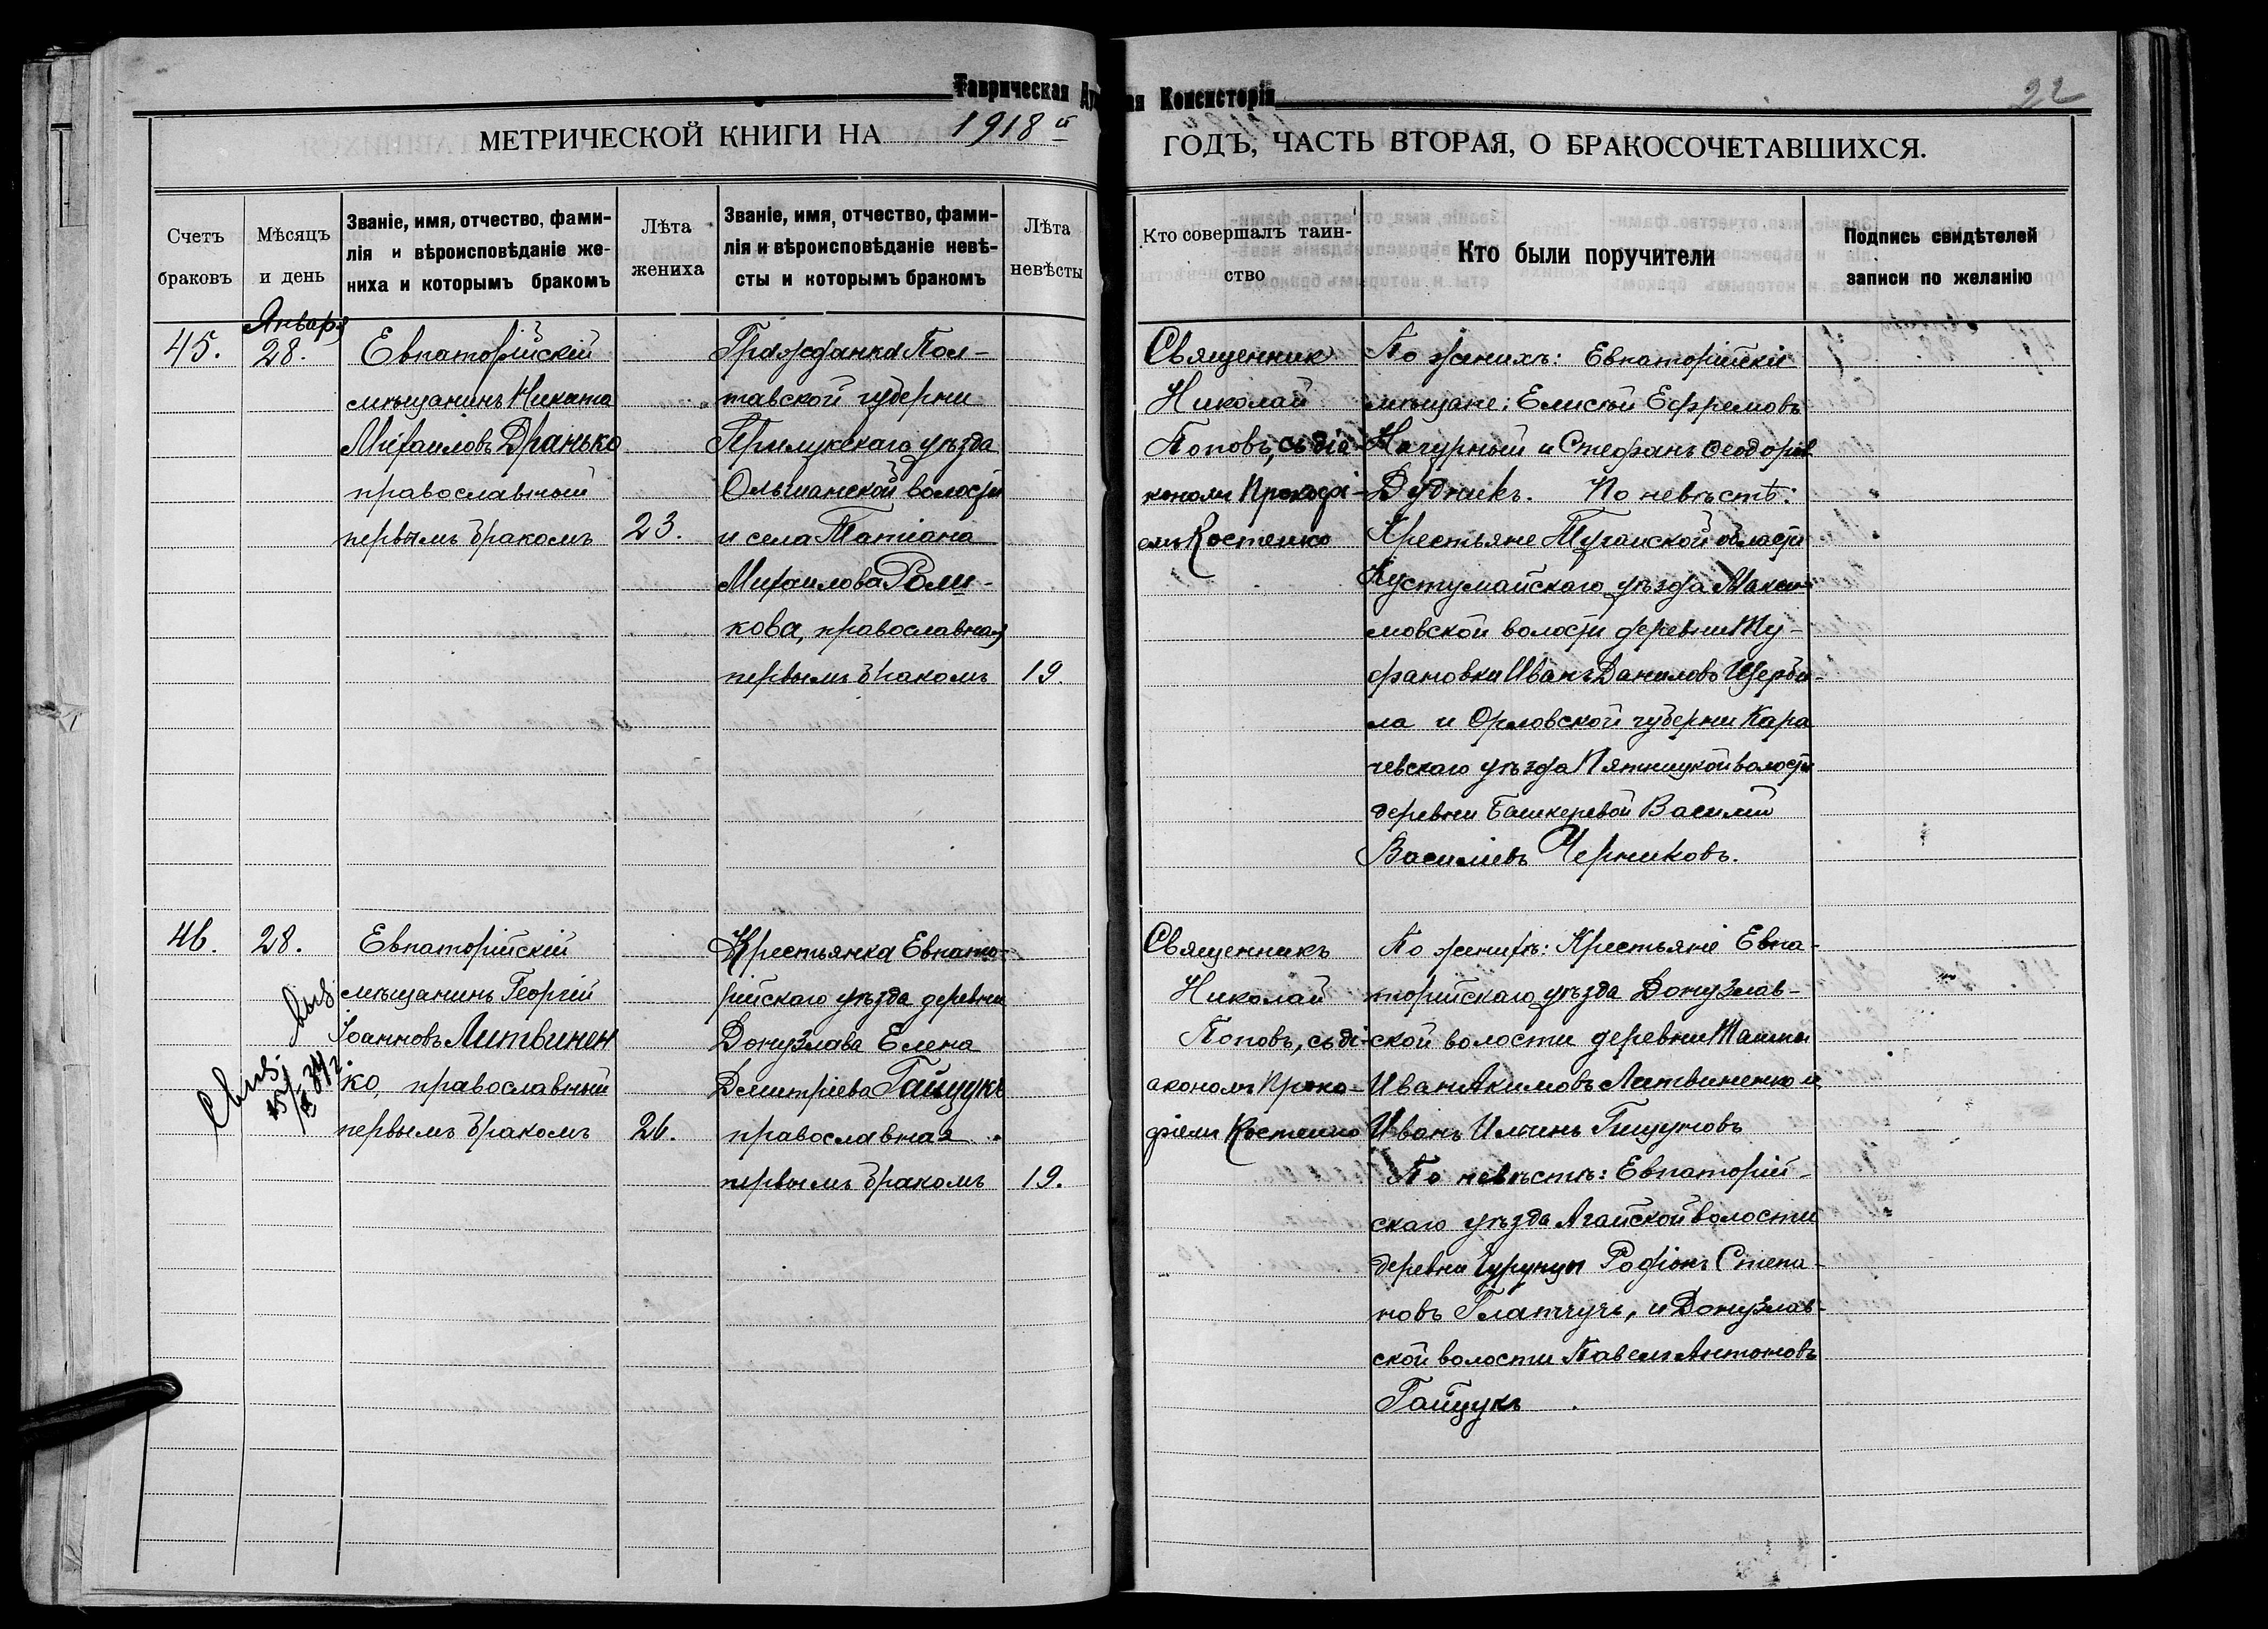 Таврическая Ду
ая Консисторія
22
МЕТРИЧЕСКОЙ КНИГИ НА 1918й
ГОДЪ, ЧАСТЬ ВТОРАЯ, О БРАКОСОЧЕТАВШИХСЯ.
Счетъ
браковъ
Мѣсяцъ
и день
Званіе, имя, отчество, фами-
лія и вѣроисповѣданіе же-
ниха и которымъ бракомъ
Лѣта
жениха
Званіе, имя, отчество, фами-
лія и вѣроисповѣданіе невѣ-
сты и которымъ бракомъ
Лѣта
невѣсты
Кто совершалъ таин-
ство
Кто были поручители
Подпись свидѣтелей
записи по желанію
45.
Январь
28.
Евпаторійскій
мѣщанинъ Никита
Михаиловъ Дранько
православный
первымъ бракомъ
23.
Гражданка Пол-
тавской губерни
Прилукскаго уѣзда
Ольшанской волости
и села Татіана
Михаилова Роли-
кова, православная
первымъ бракомъ
19.
Священник
Николай
Поповъ, съ діа-
кономъ Прокофі-
емъ Костенко
По женихѣ: Евпаторійскіе
мѣщане: Елисѣй Ефремовъ
Качурный и Стефанъ Ѳеодоров
Дудникъ. По невѣстѣ:
Крестьяне Тургайской области
Кустумайскаго уѣзда Макси-
мовской волости деревни
Ивань Даниловъ Щерби-
ла и Орловской губерни Кара
чевскаго уѣзда Пятницкой волости
деревни Башкеревой Василій
Василіевъ Черниковъ.
46.
28.
Евпаторійскій
мѣщанинъ Георгій
Іоанновъ Литвинен
ко, православный
первымъ бракомъ
26.
Крестьянка Евпато-
рійскаго уѣзда деревни
Донузлава Елена
Димитріева Гайщукъ
православная
первымъ бракомъ
19.
Священникъ
Николай
Поповъ, съ ді-
акономъ Проко-
фіемъ Костенко
По женихѣ: Крестьяне Евпа-
торійскаго уѣзда Донузлав-
ской волости деревни
Иван Акимовъ Литвиненко и
Иванъ Ильинъ Пищуновъ
По невѣстѣ: Евпаторій-
скаго уѣзда Агайской волости
деревни Чурукуы Родіонъ Степа-
новъ и Донузлав-
ской волости Павелъ Антоновъ
Гайщукъ